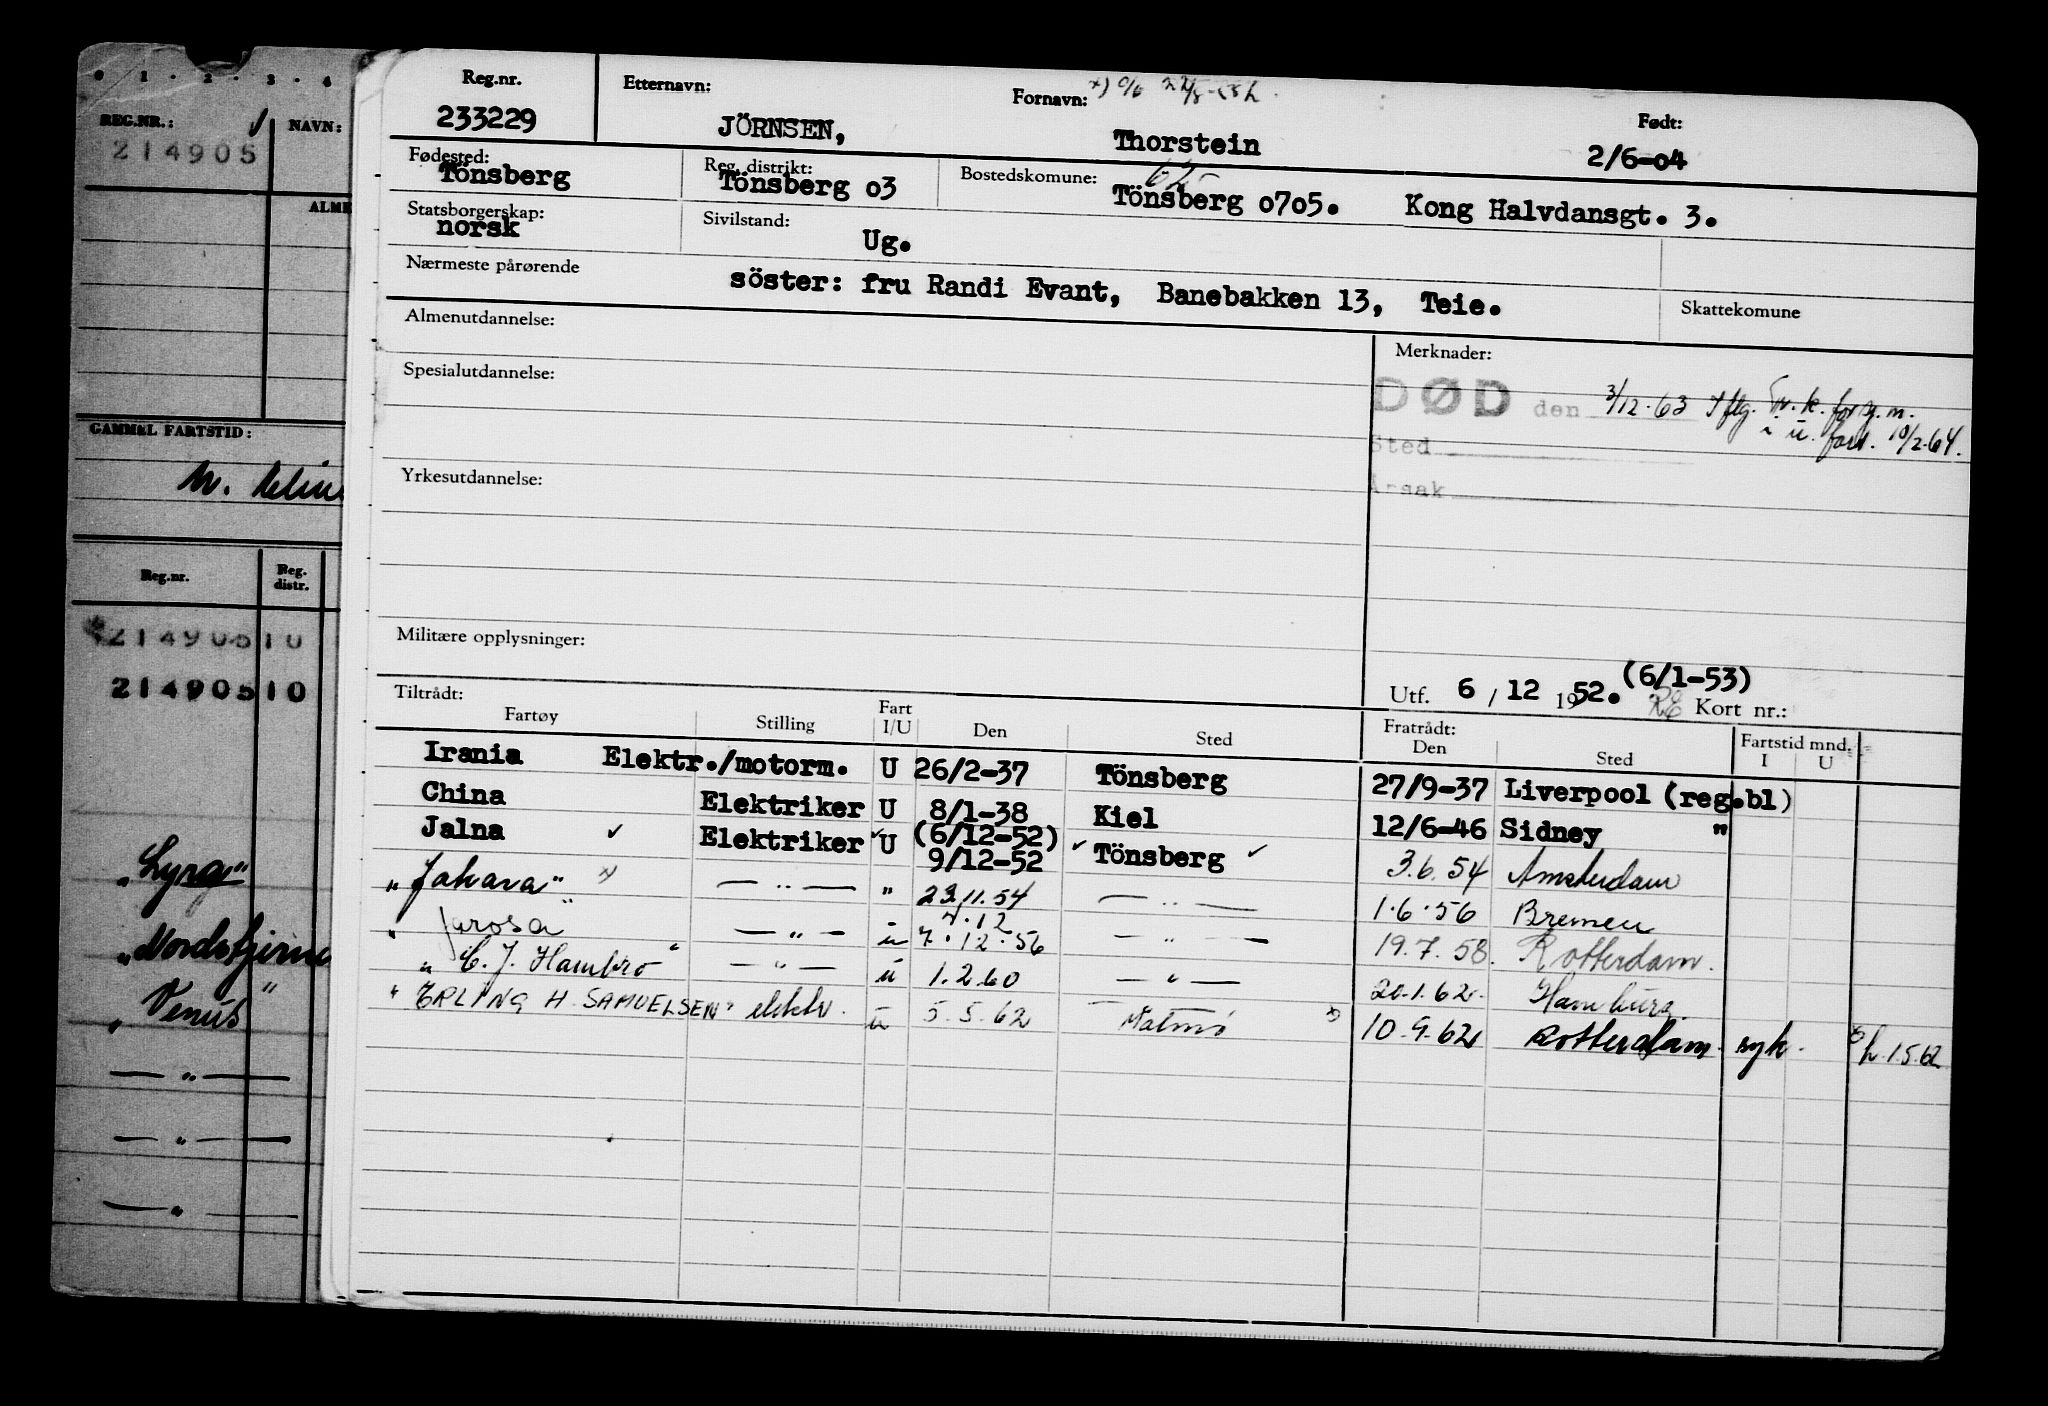 0 1 . 2 . 3 . 4
REG.NR.: NAVN:
214905
ALME
GAMMEL FARTSTID:
Reg.nr. Reg. distr.
214905 10
214905 10
"Lyra"
"Nordstjerne
"Venus"
— " —
— " —
— " —
Reg.nr. Etternavn: Fornavn: Født:
233229 JÖRNSEN, Thorstein 2/6-04
Fødested: Reg. distrikt: Bostedskomune: 62
Tönsberg Tönsberg 03 Tönsberg 0705. Kong Halvdansgt. 3.
Statsborgerskap: Sivilstand:
norsk Ug.
Nærmeste pårørende
söster: fru Randi Evant, Banebakken 13, Teie.
Skattekomune
Almenutdannelse:
Merknader:
Spesialutdannelse:
DØD den 3/12.63 Iflg. Tr.k. forsg. m.
i u. fart. 10/2.64.
Sted
Årsak
Yrkesutdannelse:
Militære opplysninger:
Utf. 6 / 12 1952. (6/1-53) Kort nr.:
Tiltrådt: Fratrådt:
Fartøy Stilling Fart I/U Den Sted Den Sted Fartstid mnd. I U
Irania Elektr./motorm. U 26/2-37 Tönsberg 27/9-37 Liverpool (reg.bl)
China Elektriker U 8/1-38 Kiel 12/6-46 Sidney "
Jalna ✓ Elektriker ✓ U (6/12-52) 9/12-52 ✓ Tönsberg ✓ 3.6.54 Amsterdam
"Jahara" x) — " — " 23.11.54 — " — 1.6.56 Bremen
" Jarosa " — " — u 7.12 7.12.56 — " — 19.7.58. Rotterdam.
" C. J. Hambro " — " — u 1.2.60 — " — 20.1.62. Hamburg.
" ERLING H. SAMUELSEN" elektr. u 5.5.62 Malmø x) 10.9.62 Rotterdam. syk. x) h. 1.5.62